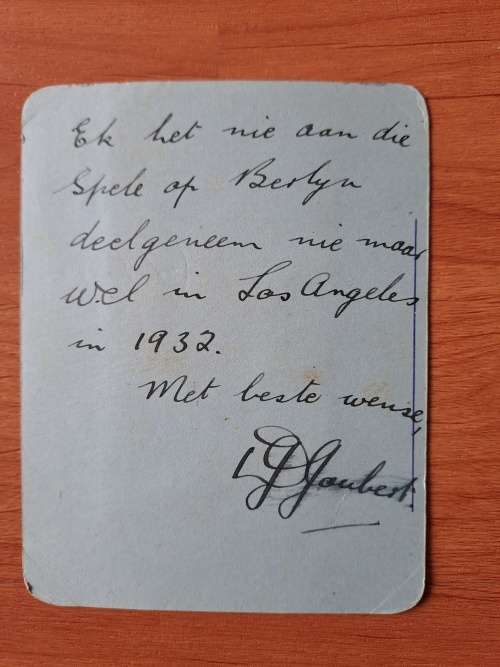 Ek het nie aan die
Spele op Berlyn
deelgeneem nie maar
wel in Los Angeles
in 1932.
Met beste wense,
Joubert.